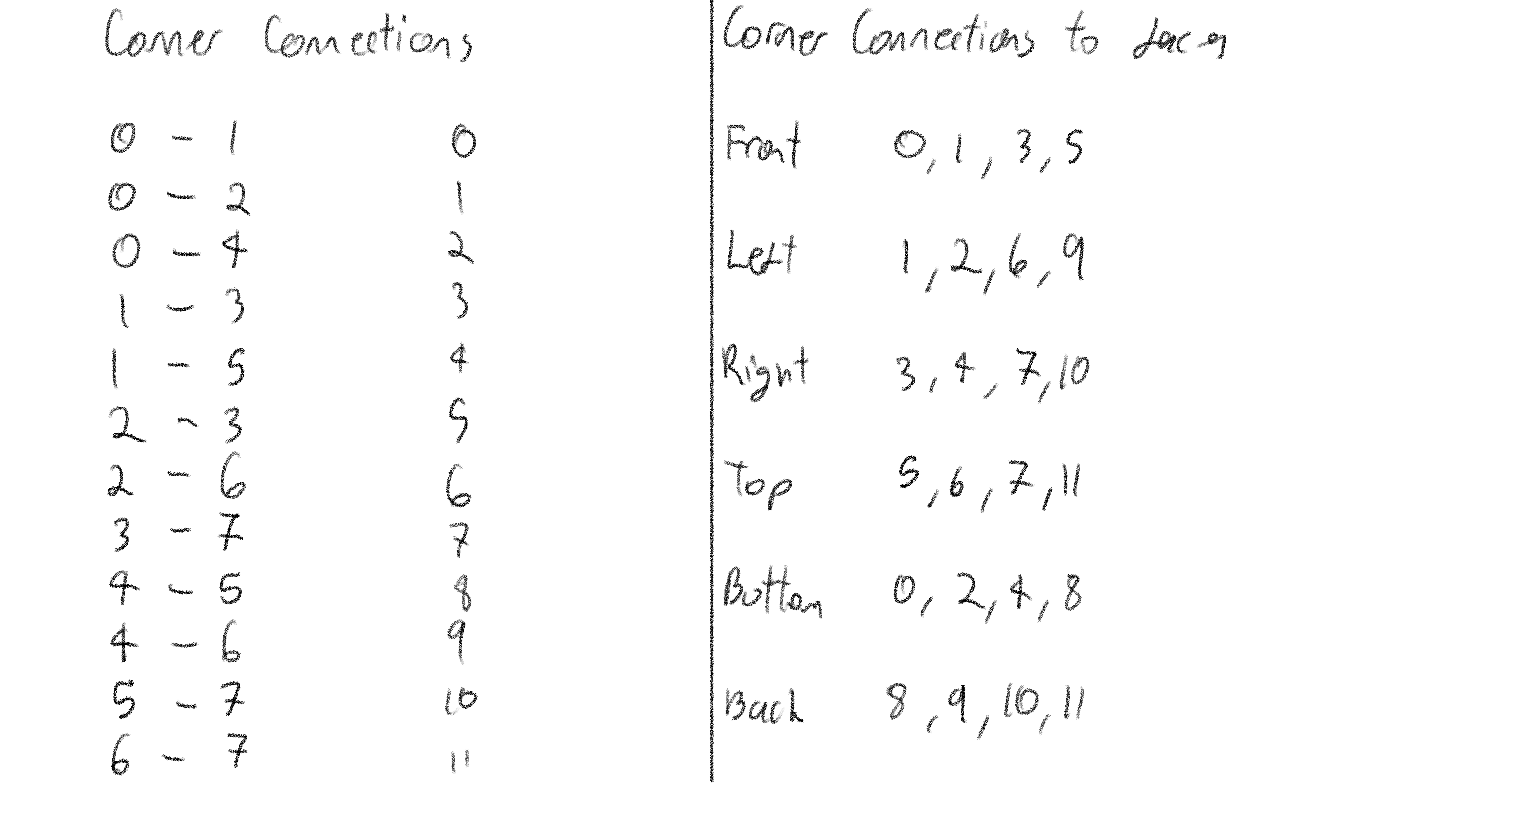 Corner Connections
0 - 1 0
0 - 2 1
0 - 4 2
1 - 3 3
1 - 5 4
2 - 3 5
2 - 6 6
3 - 7 7
4 - 5 8
4 - 6 9
5 - 7 10
6 - 7 11
Corner Connections to faces
Front 0, 1, 3, 5
Left 1, 2, 6, 9
Right 3, 4, 7, 10
Top 5, 6, 7, 11
Bottom 0, 2, 4, 8
Back 8, 9, 10, 11